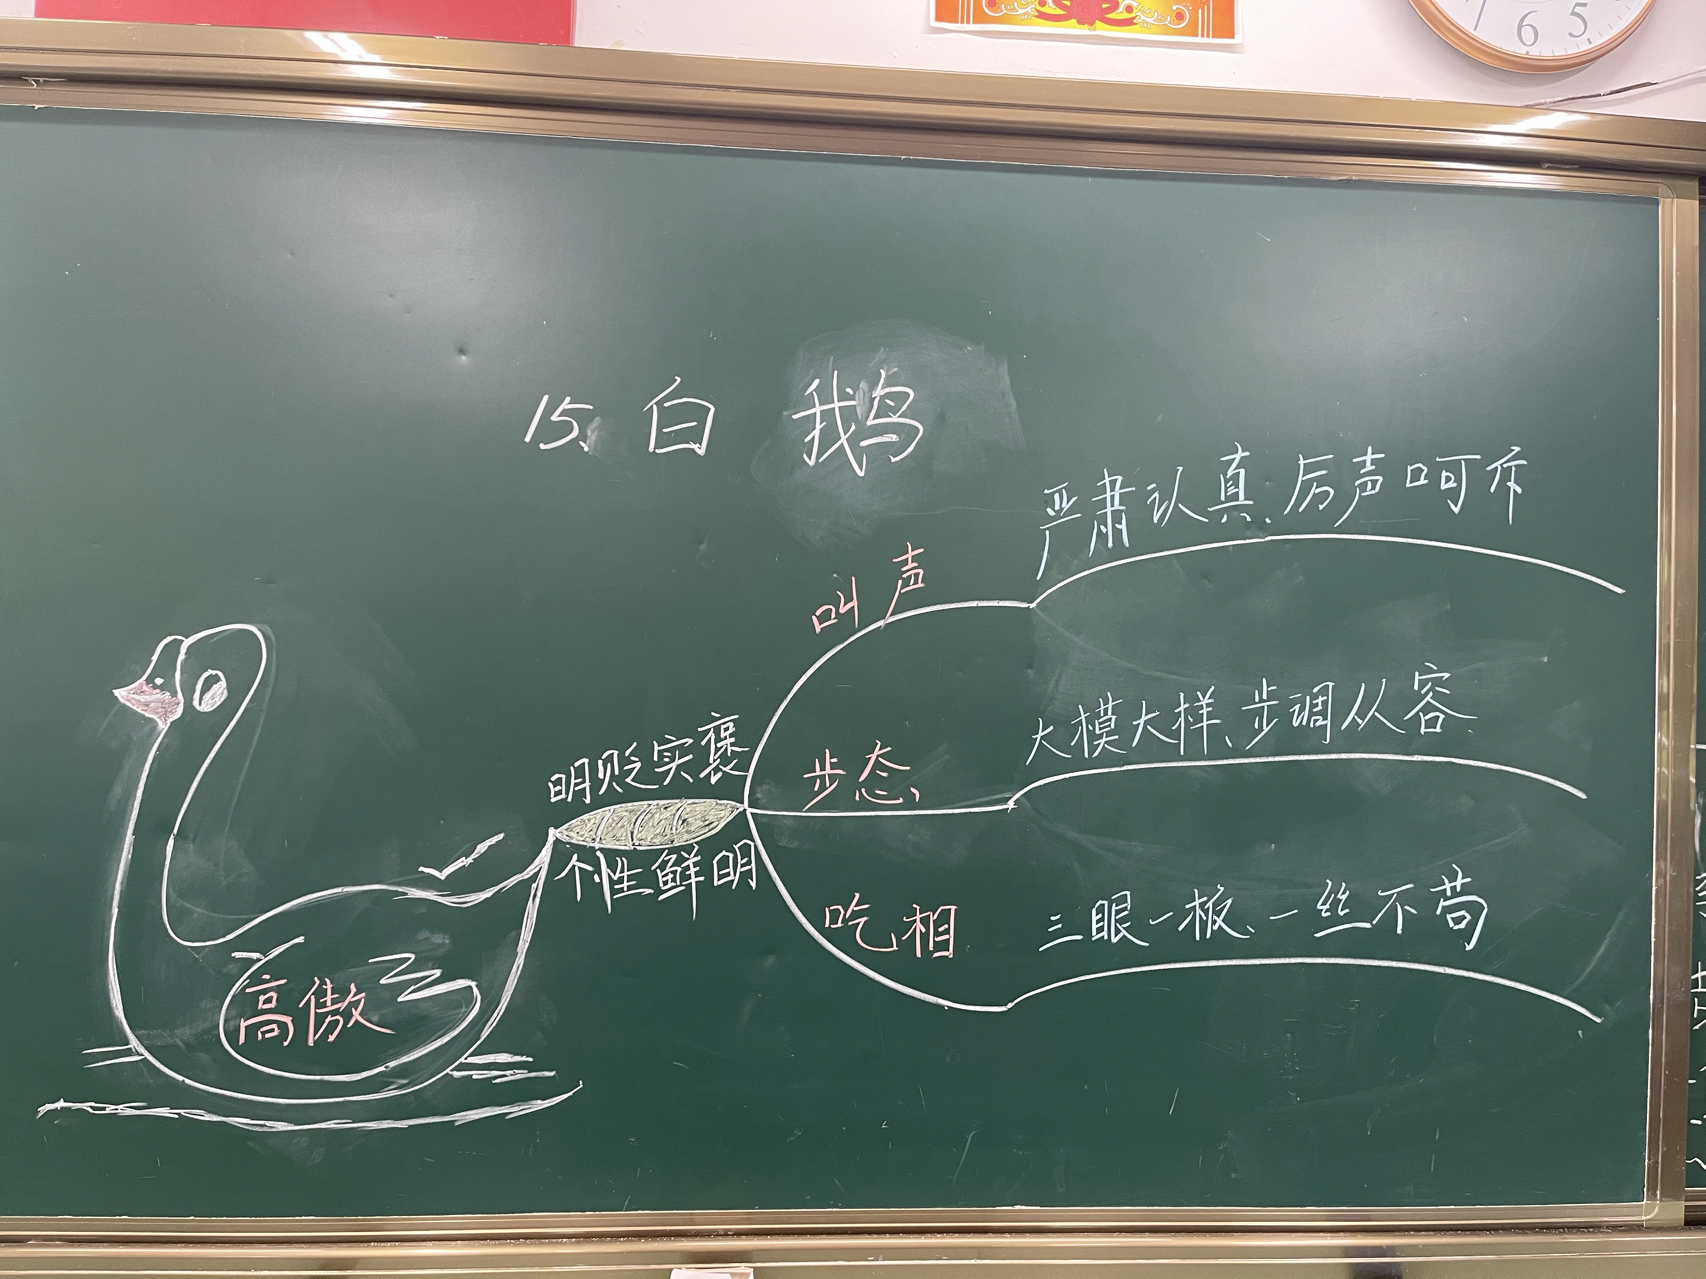 15、白鹅
叫声
严肃认真、厉声呵斥
明贬实褒
个性鲜明
步态、
大模大样、步调从容
吃相
三眼一板、一丝不苟
高傲
6 5